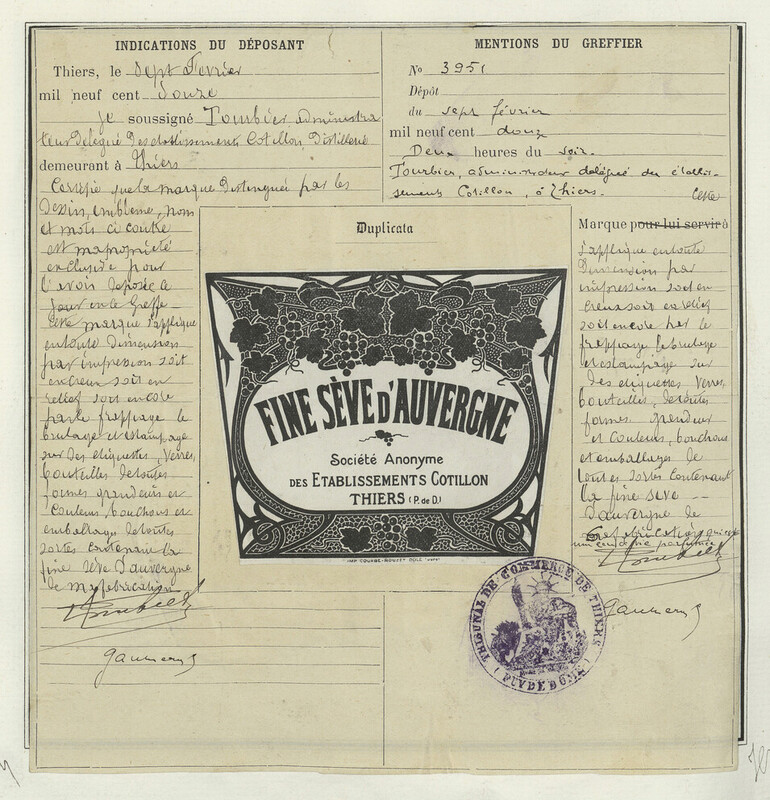 INDICATIONS DU DÉPOSANT
Thiers, le sept Fevrier
mil neuf cent douze
Je soussigné Tourbier administra
teur Délégué Des établissements Cotillon Distillerie
demeurant à Thiers
Certifie que la marque Distinguée par les
Dessin, emblème, nom
et mots ci contre
est ma propriété
exclusive pour
l'avoir Déposée le
jour en le Greffe
Cette marque s'applique
en toute Dimension
par impression soit
en creux soit en
relief soit encore
par le frappage le
brutage et estampage
sur Des etiquettes, Verres,
bouteilles de toutes
formes grandeurs et
couleurs bouchons et
emballages de toutes
sortes contenant la
fine sève d'auvergne
de ma fabrication
MENTIONS DU GREFFIER
No 3951
Dépôt
du sept février
mil neuf cent douze
Deux heures du soir.
Tourbier, administrateur délégué des établis-
sements Cotillon, à Thiers.
Cette
Marque pour lui servir à
s'applique en toute
Dimension par
impression soit en
creux soit en relief
soit encore par le
frappage le brutage
et estampage sur
des etiquettes Verres,
bouteilles, de toutes
formes grandeur
et couleurs, bouchons
et emballages de
toutes sortes contenant
la fine seve
d'auvergne de
fabrication qui est
Duplicata
FINE SÈVE D'AUVERGNE
Société Anonyme
DES ETABLISSEMENTS COTILLON
THIERS (P. de D.)
TRIBUNAL DE COMMERCE DE THIERS
(PUY DE DÔME)